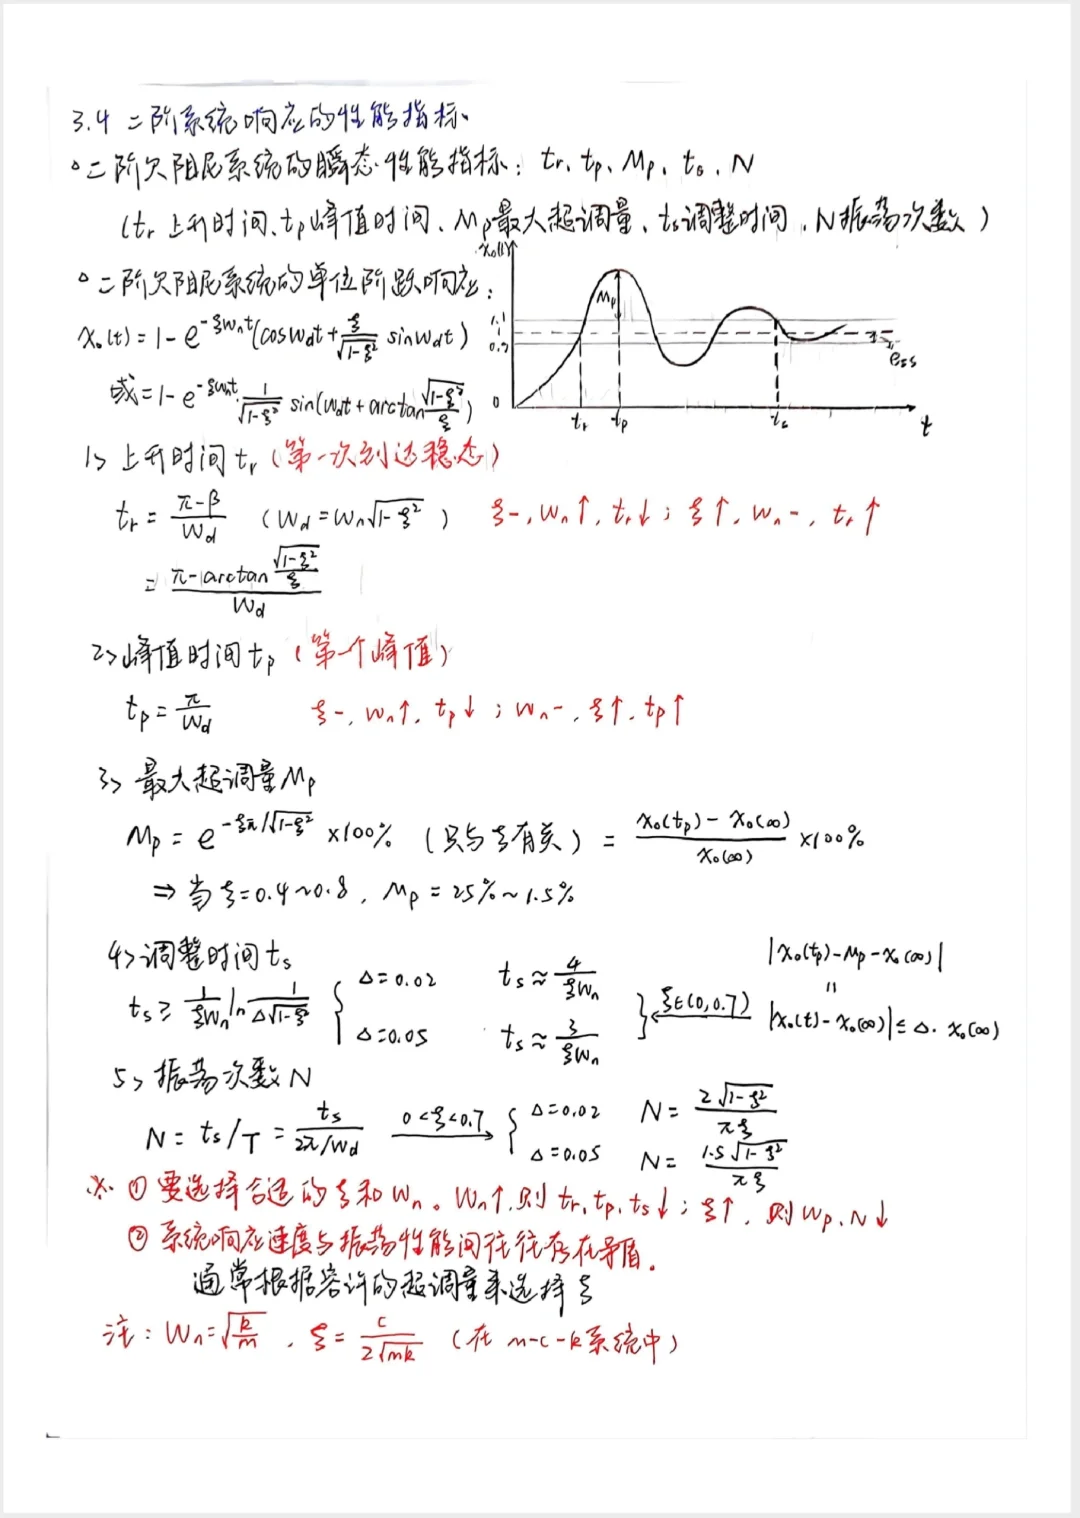 3.4 二阶系统响应的性能指标
°二阶欠阻尼系统的瞬态性能指标：tr、tp、Mp、ts、N
(tr 上升时间、tp峰值时间、Mp最大超调量、ts调整时间、N振荡次数)
°二阶欠阻尼系统的单位阶跃响应：
x₀(t)
Mp
1.1
1
0.9
0
tr
tp
ts
t
ess
x₀(t)=1-e^(-ξwnt)(coswdt+ξ/√(1-ξ²) sinwdt)
或=1-e^(-ξwnt)·1/√(1-ξ²) sin(wdt+arctan √(1-ξ²)/ξ)
1> 上升时间 tr (第一次到达稳态)
tr = (π-β)/wd (wd=wn√(1-ξ²)) ξ-, wn↑, tr↓; ξ↑, wn-, tr↑
= (π-arctan √(1-ξ²)/ξ)/wd
2>峰值时间 tp (第一个峰值)
tp=π/wd ξ-, wn↑, tp↓; wn-, ξ↑, tp↑
3> 最大超调量Mp
Mp = e^(-ξπ/√(1-ξ²)) ×100% (只与ξ有关) = (x₀(tp)-x₀(∞))/x₀(∞) ×100%
⇒ 当ξ=0.4~0.8, Mp=25%~1.5%
4>调整时间ts
ts≥ 1/(ξwn) ln 1/(Δ√(1-ξ²)) { Δ=0.02 ts≈4/(ξwn)
Δ=0.05 ts≈3/(ξwn) } ξ∈(0,0.7)
|x₀(tp)-Mp-x₀(∞)|
=
|x₀(t)-x₀(∞)|≤Δ·x₀(∞)
5> 振荡次数N
N=ts/T=ts/(2π/wd) 0<ξ<0.7→ { Δ=0.02 N=2√(1-ξ²)/(πξ)
Δ=0.05 N=1.5√(1-ξ²)/(πξ)
※ ① 要选择合适的ξ和wn。wn↑,则tr,tp,ts↓; ξ↑, 则Mp,N↓
② 系统响应速度与振荡性能间往往存在矛盾。
通常根据容许的超调量来选择ξ
注: wn=√(k/m), ξ=c/(2√mk) (在m-c-k系统中)